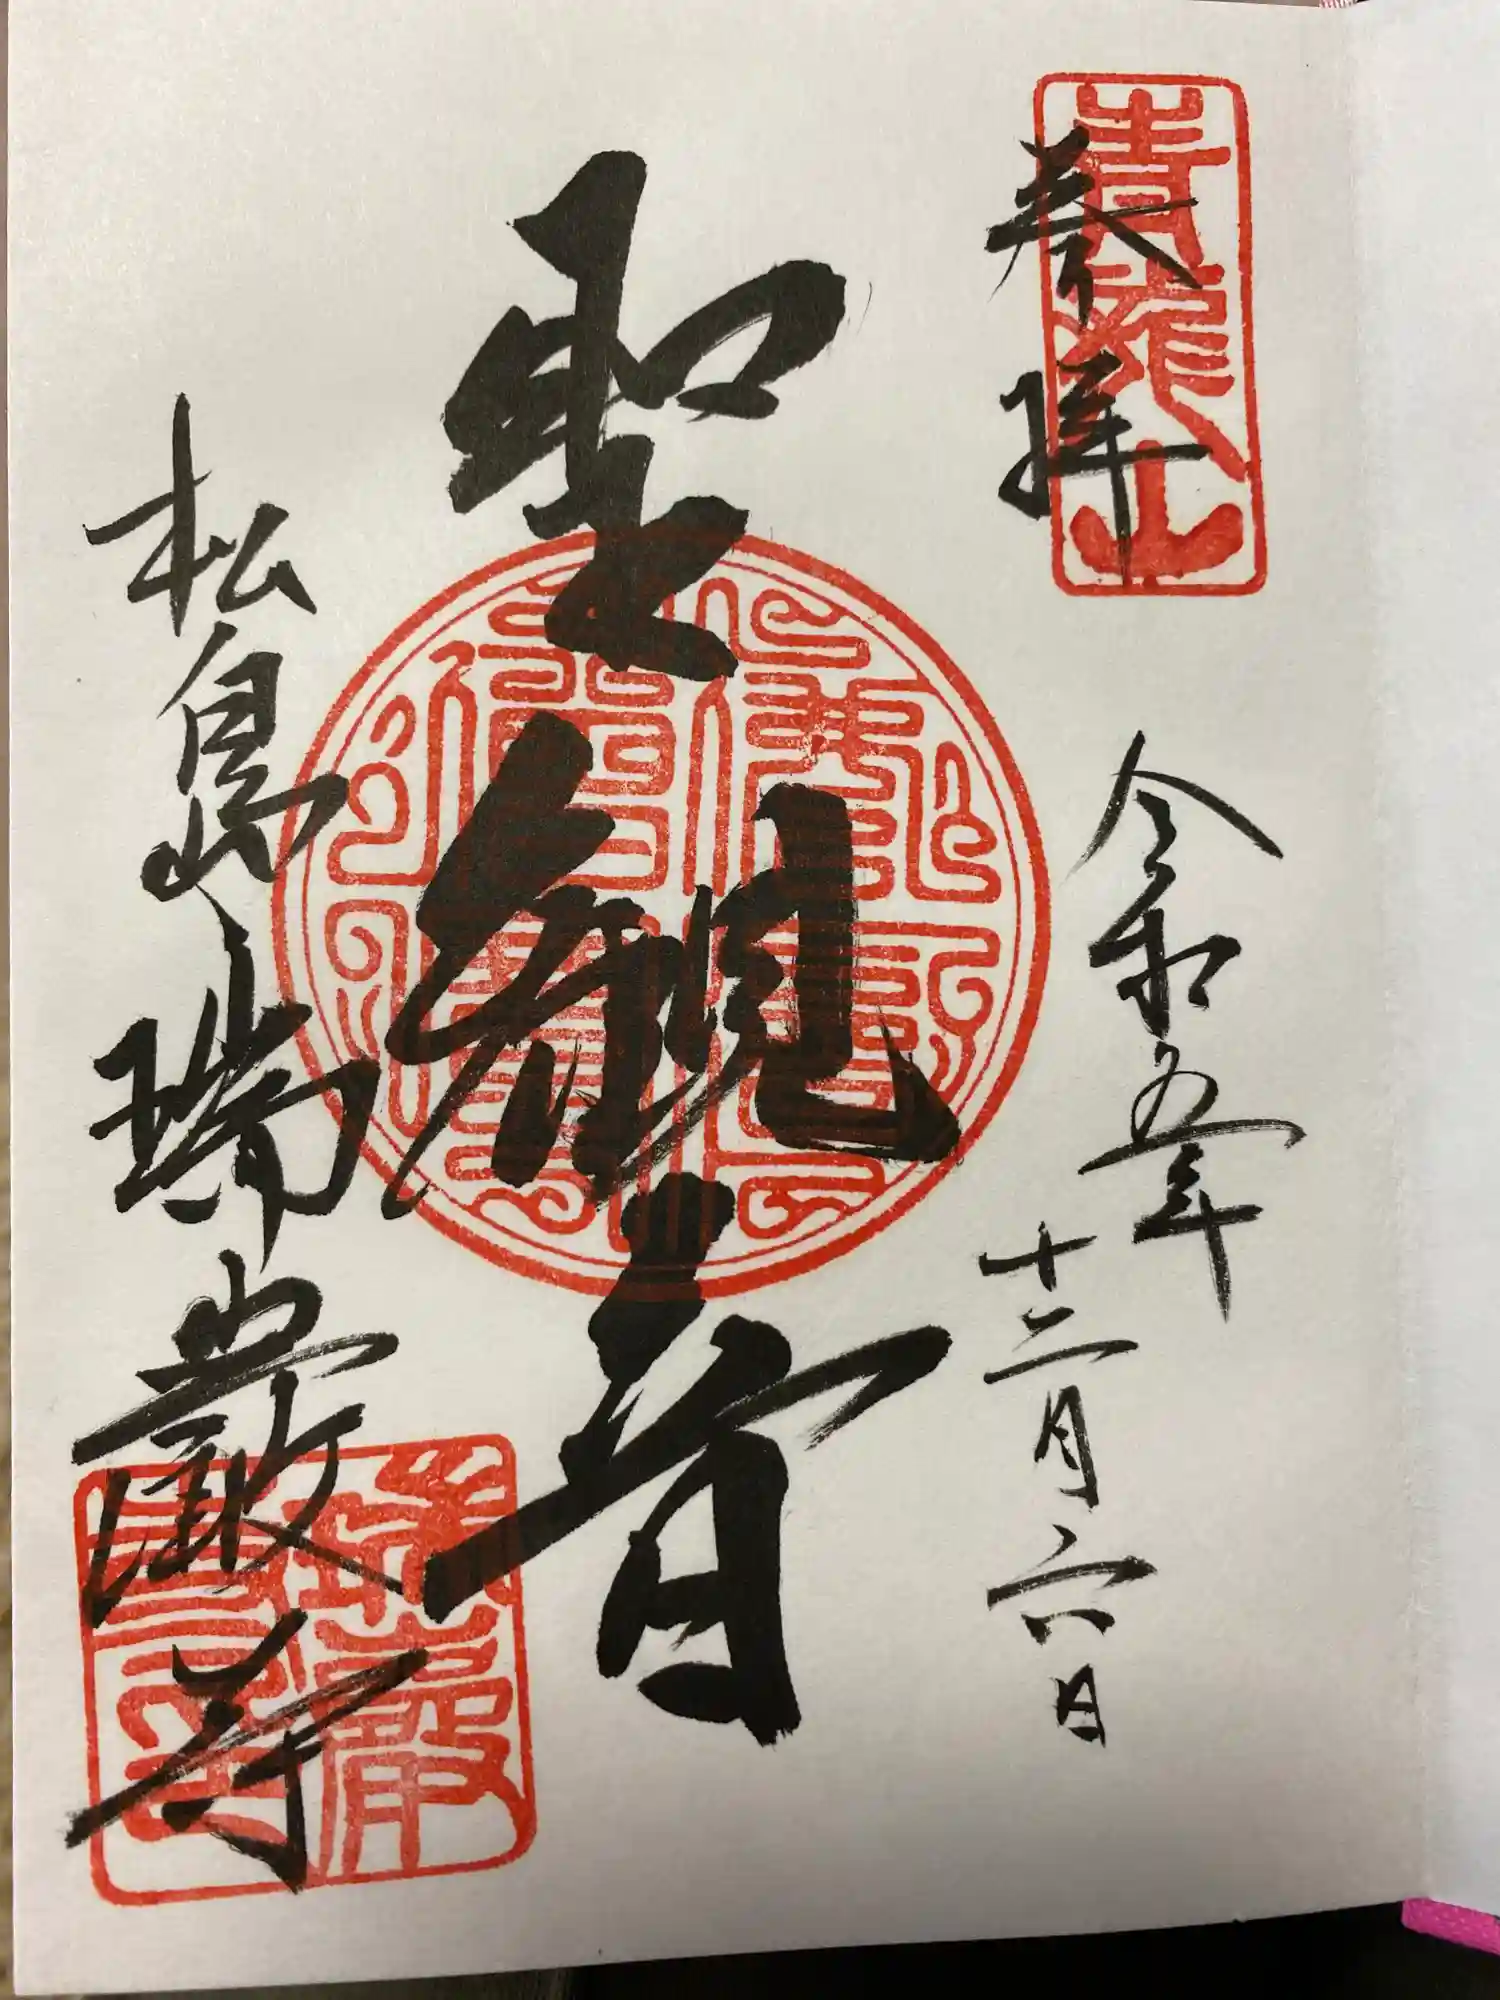 青龍山
奉拝
令和五年
十二月六日
聖観音
松島瑞巌寺